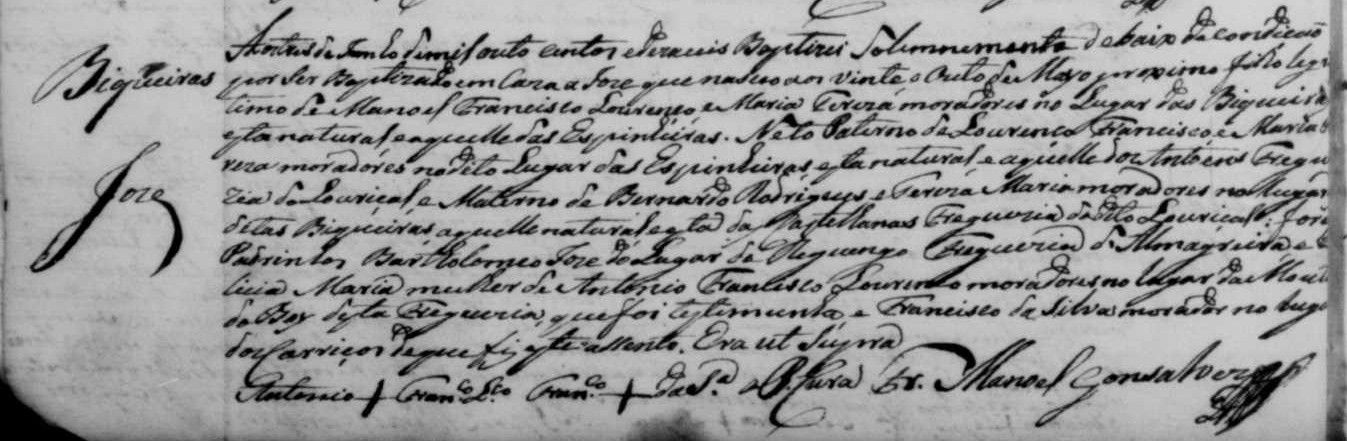 Biqueiras
Joze
Aos tres de Junho de mil outo centos e dezaceis Baptizei Solemnemente debaixo da condição
por Ser Baptizado em Caza a Joze que nasceo aos vinte e outo de Mayo proximo filho legi
timo de Manoel Francisco Lourenço e Maria Tereza moradores no Lugar das Biqueiras
esta natural e aquelle das Espinheiras. Neto Paterno de Lourenco Francisco e Maria
reza moradores no dito Lugar das Espinheiras, esta natural e aquelle dos Antóens Fregu
zia do Louriçal e Materno de Bernardo Rodrigues e Tereza Maria moradores no Lugar
destas Biqueiras aquelle natural e esta da Castellanas Freguezia do dito Louriçal. forão
Padrinhos Bartholomeo Joze do Lugar de Reguengo Freguezia de Almagreira e
licia Maria mulher de Antonio Francisco Lourenço moradores no lugar da Mouta
do Boy desta Freguezia, que foi testimunha e Francisco da Silva morador no luga
dos Carriços de que fiz este assento. Era ut Supra
Antonio + Fran.co L.ço Fran.co + da S.a O P. Cura Fr. Manoel Gonsalvez